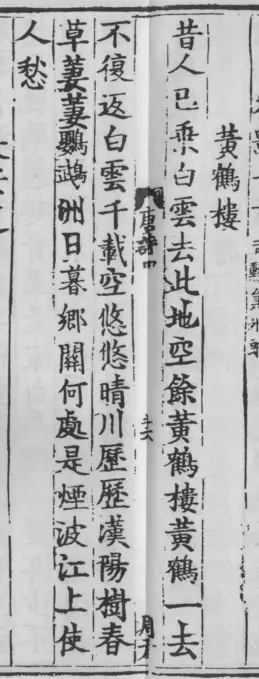 黃鶴樓
昔人已乗白雲去此地空餘黃鶴樓黃鶴一去
唐詩四
不復返白雲千載空悠悠晴川歷歷漢陽樹春
草萋萋鸚鵡洲日暮鄉關何處是煙波江上使
人愁